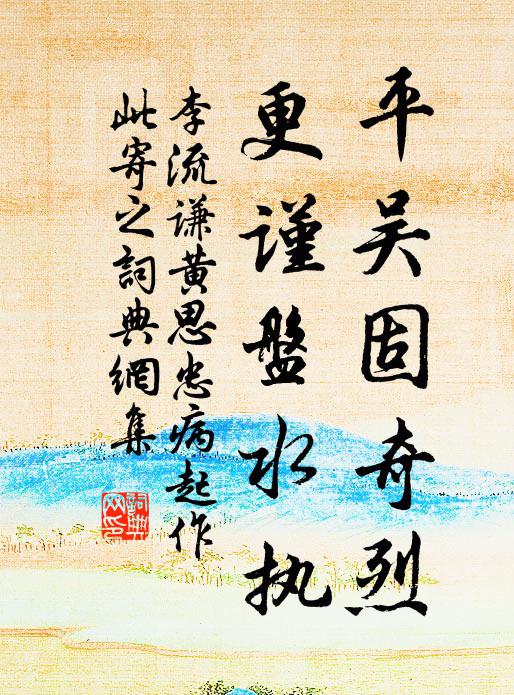 平吴固奇烈
更謹盤水执
李流谦黄思忠病起作
此寄之詞典網集
詞典
网印